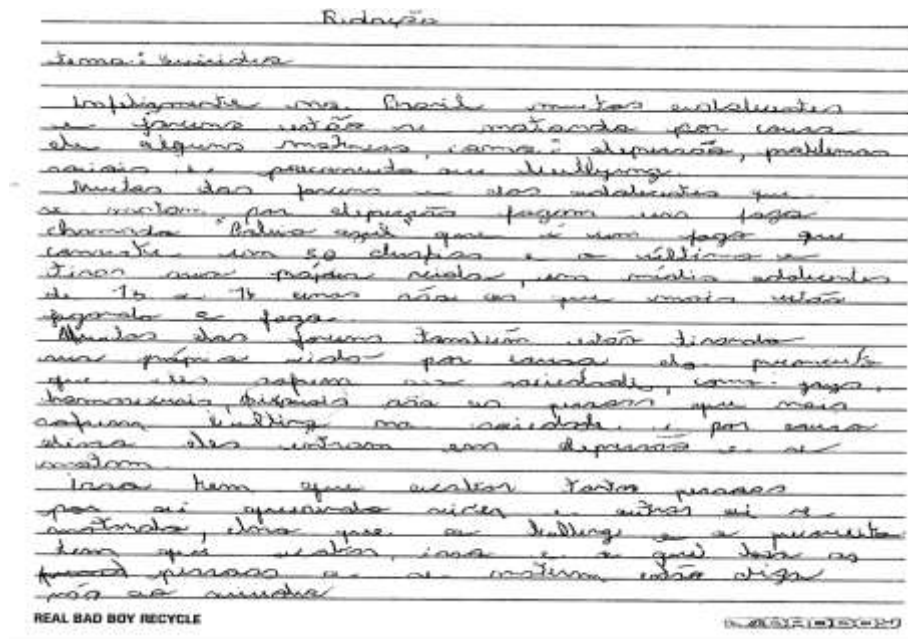 Redação
tema: Suicídio
Infelizmente no Brasil muitos adolescentes
e jovens estão se matando por causa
de alguns motivos, como: depressão, problemas
sociais e preconceito ou bullying.
Muitos dos jovens e dos adolescentes que
se matam por depressão jogam um jogo
chamado "Baleia azul" que é um jogo que
consiste em 50 desafios e o último e
tirar sua própria vida, em média adolescentes
de a anos são os que mais estão
jogando o jogo.
Muitos dos jovens também estão tirando
sua própria vida por causa do preconceito
que eles sofrem na sociedade, como: gays,
homosexuais, são as pessoas que mais
sofrem bulling na sociedade e por causa
disso eles entram em depressão e se
matam.
Isso tem que acabar tantas pessoas
por ai querendo viver e outras ai se
matando, que o bulling e o preconceito
tem que acabar, isso e o que leva as
pessoas a se matarem então diga
não ao suicidio
REAL BAD BOY RECYCLE